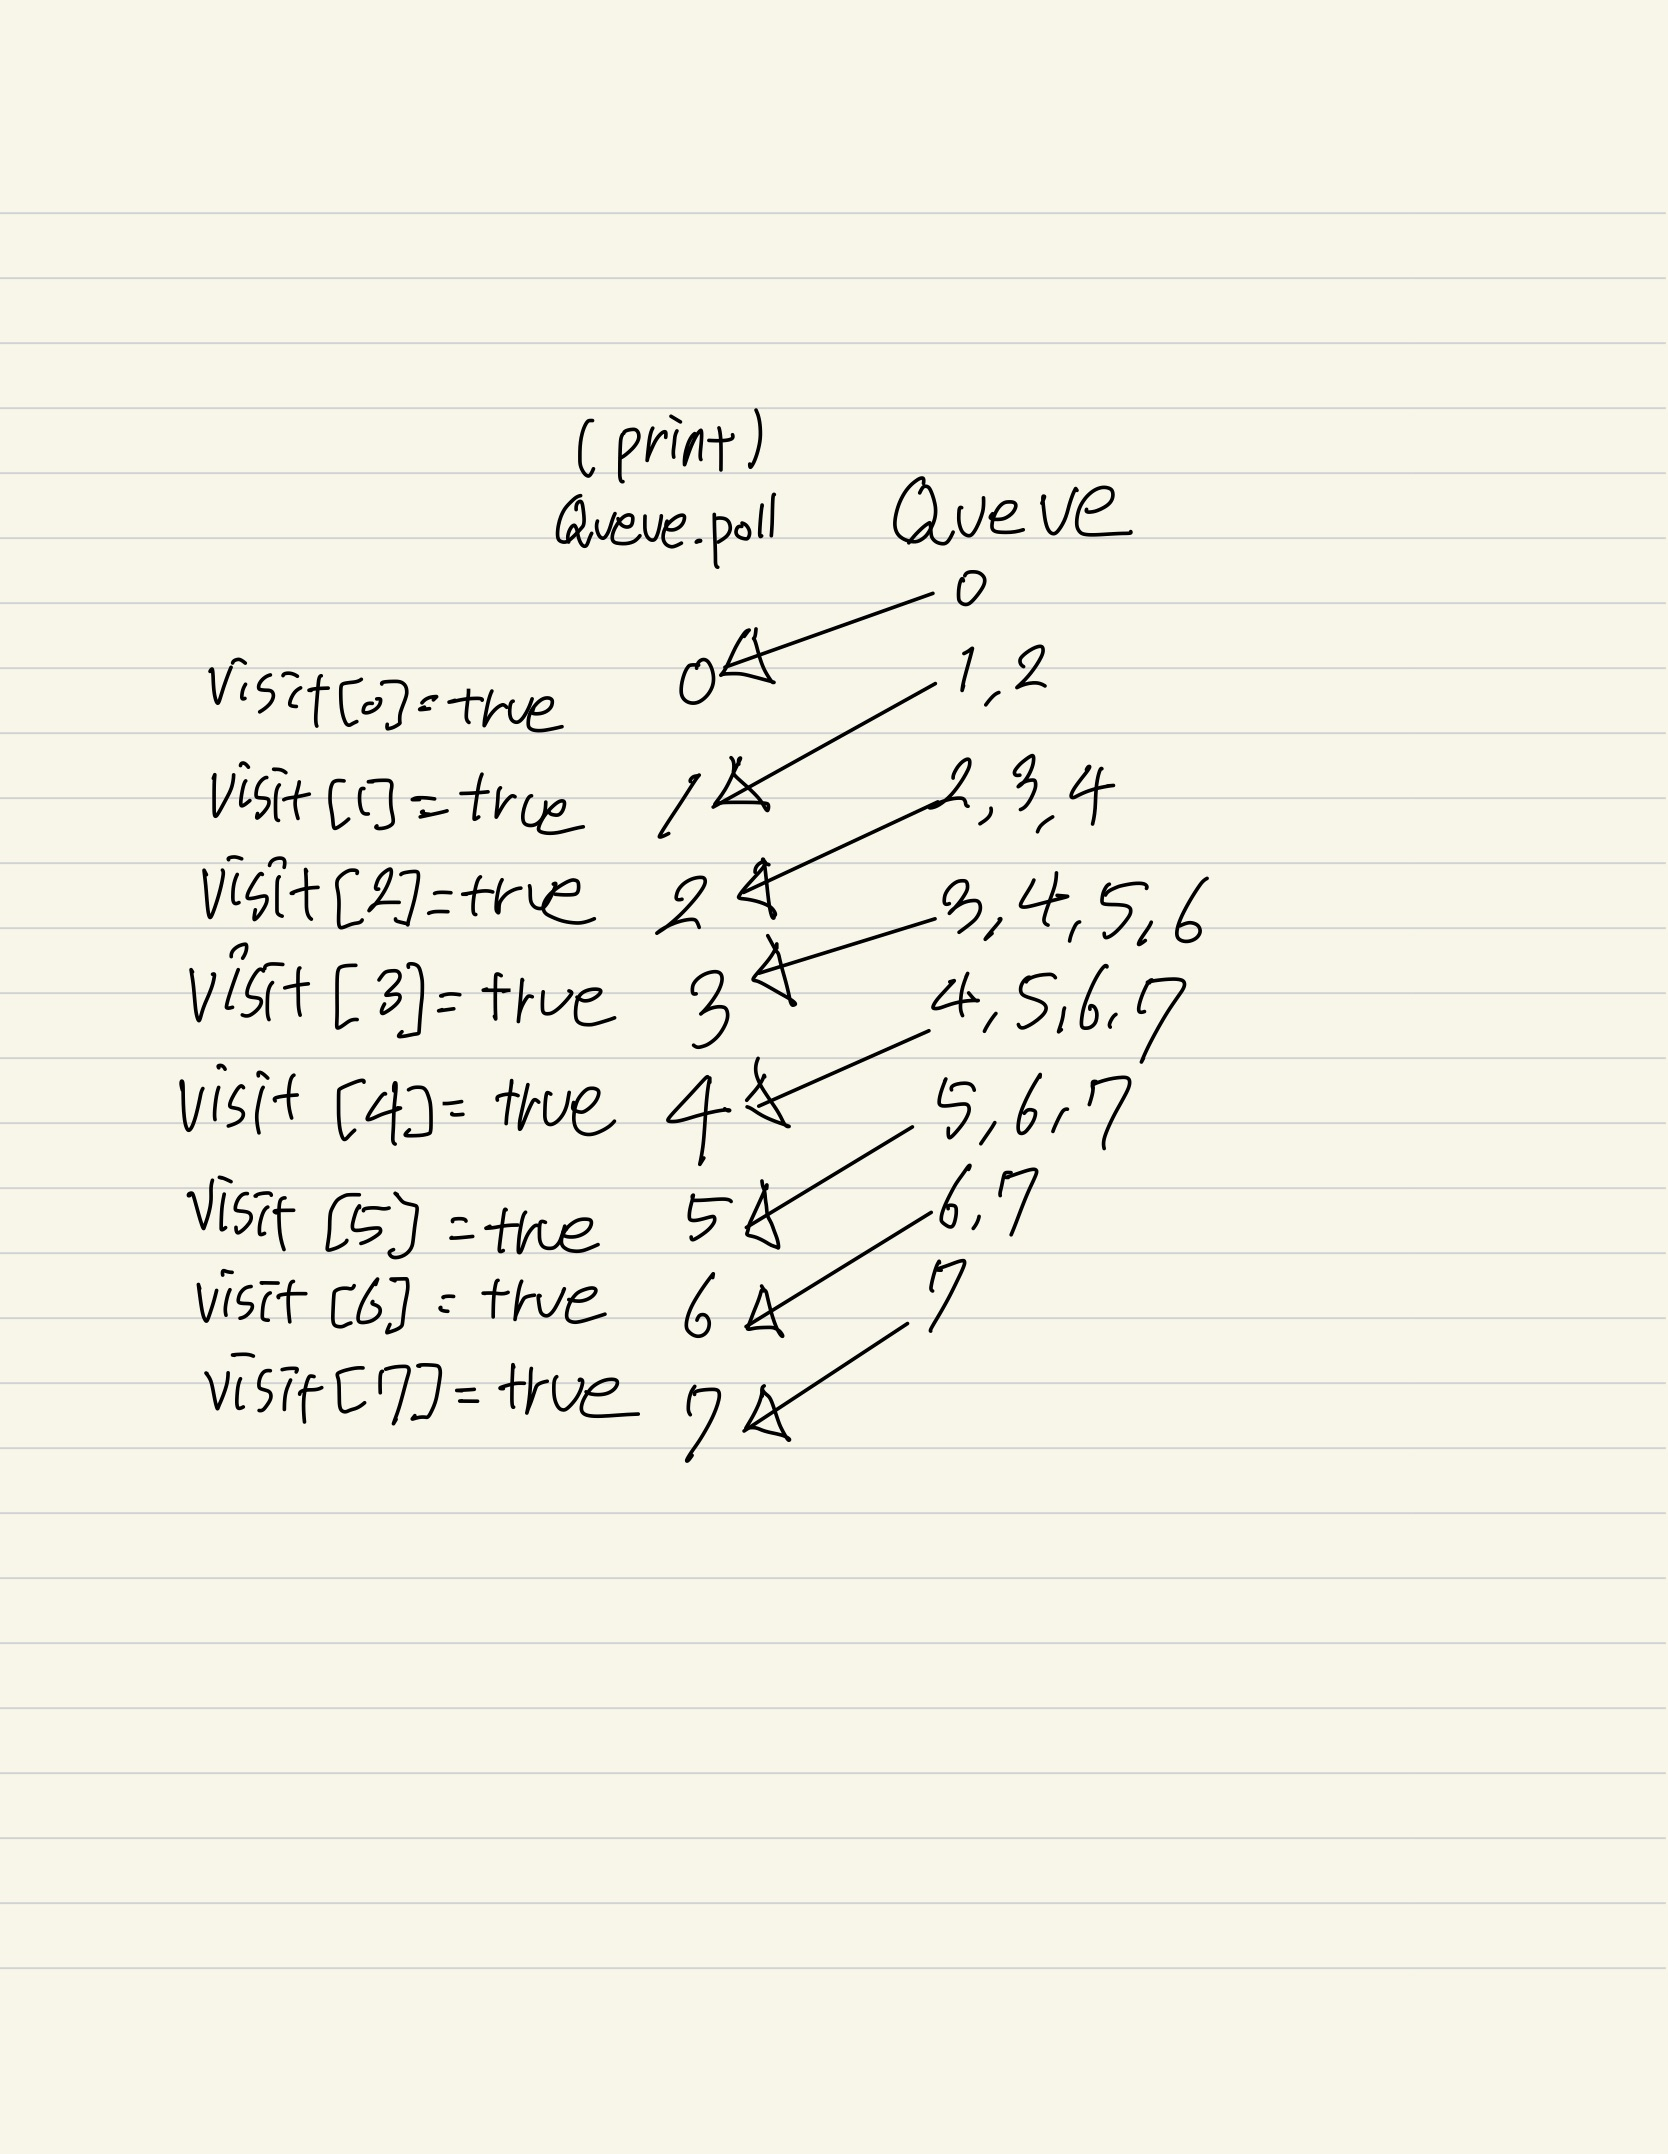 (print)
Queue.poll Queue
0
visit[0]=true 0 1,2
visit[1]=true 1 2,3,4
visit[2]=true 2 3,4,5,6
visit[3]=true 3 4,5,6,7
visit[4]=true 4 5,6,7
visit[5]=true 5 6,7
visit[6]=true 6 7
visit[7]=true 7